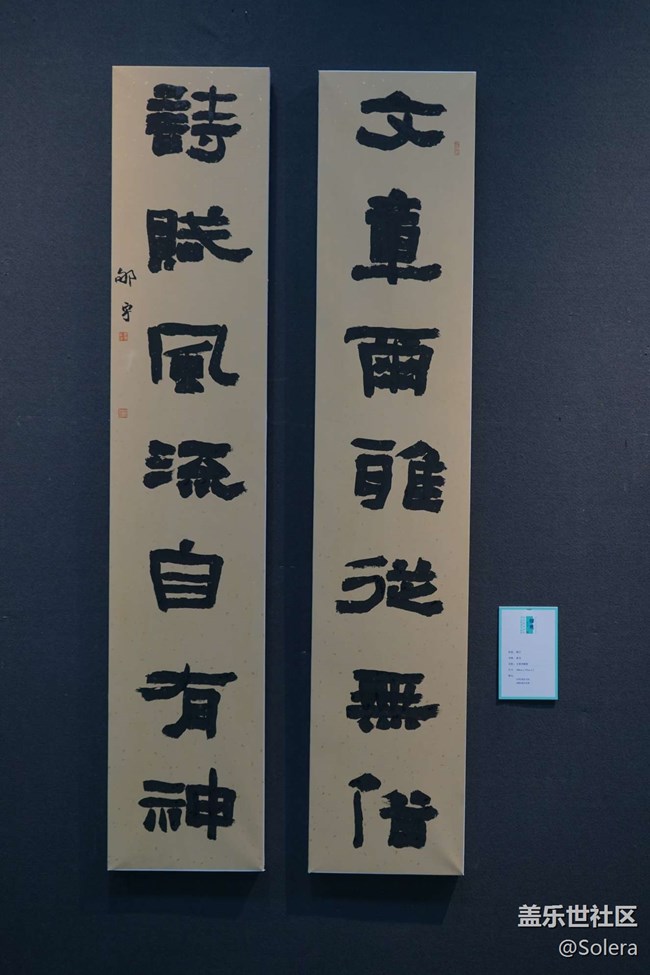 文章爾雅從無借
詩賦風流自有神
盖乐世社区
@Solera